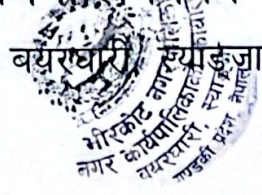 बयरघारी, स्याङ्जा
भीरकोट नगरपालिका
नगर कार्यपालिकाको कार्यालय
बयरघारी, स्याङ्जा
गण्डकी प्रदेश, नेपाल